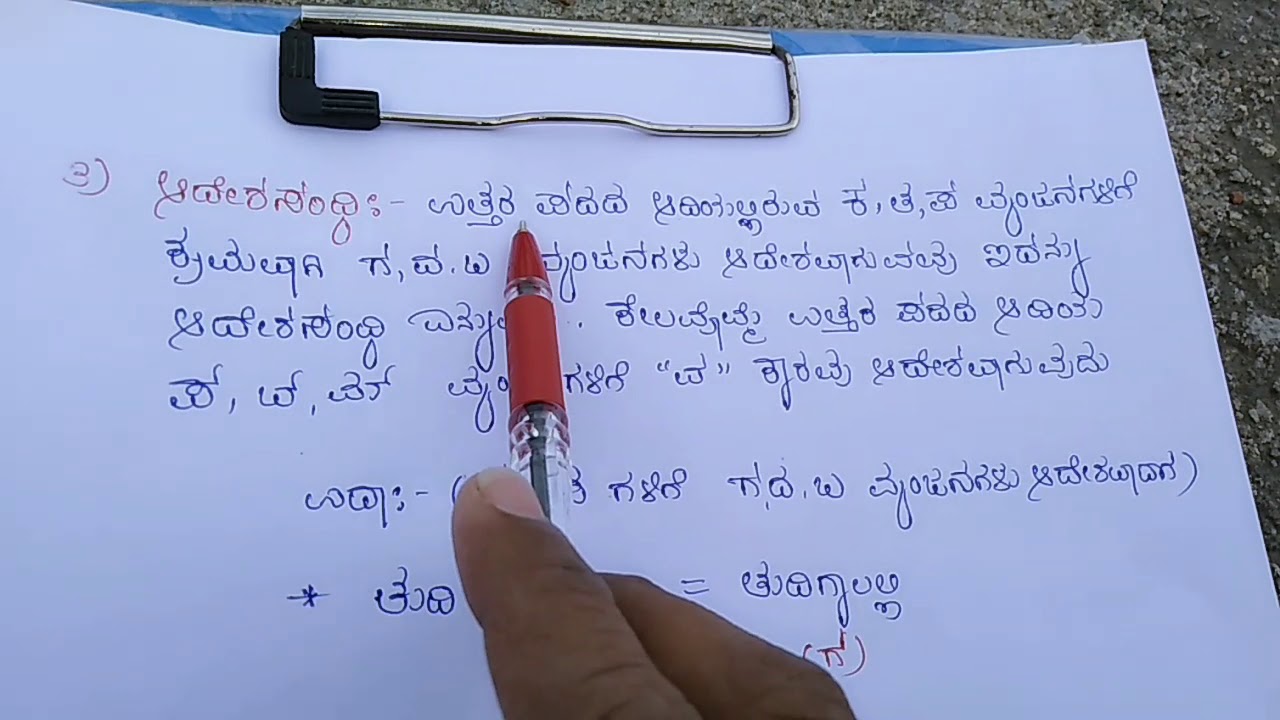 ೩) ಆದೇಶಸಂಧಿ:- ಉತ್ತರ ಪದದ ಆದಿಯಲ್ಲಿರುವ ಕ, ತ, ಪ ವ್ಯಂಜನಗಳಿಗೆ
ಕ್ರಮವಾಗಿ ಗ, ದ. ಬ ವ್ಯಂಜನಗಳು ಆದೇಶವಾಗುವವು ಇದನ್ನು
ಆದೇಶಸಂಧಿ ಕೆಲವೊಮ್ಮೆ ಉತ್ತರ ಪದದ ಆದಿಯ
ಪ, ಬ್, ಮ್ ಗಳಿಗೆ "ವ" ಕಾರವು ಆದೇಶವಾಗುವುದು
ಉದಾ:- ( ತ ಗಳಿಗೆ ಗ,ದ.ಬ ವ್ಯಂಜನಗಳು ಆದೇಶವಾದಾಗ)
* ತುದಿ = ತುದಿಗಾಲಲ್ಲಿ
(ಗ)